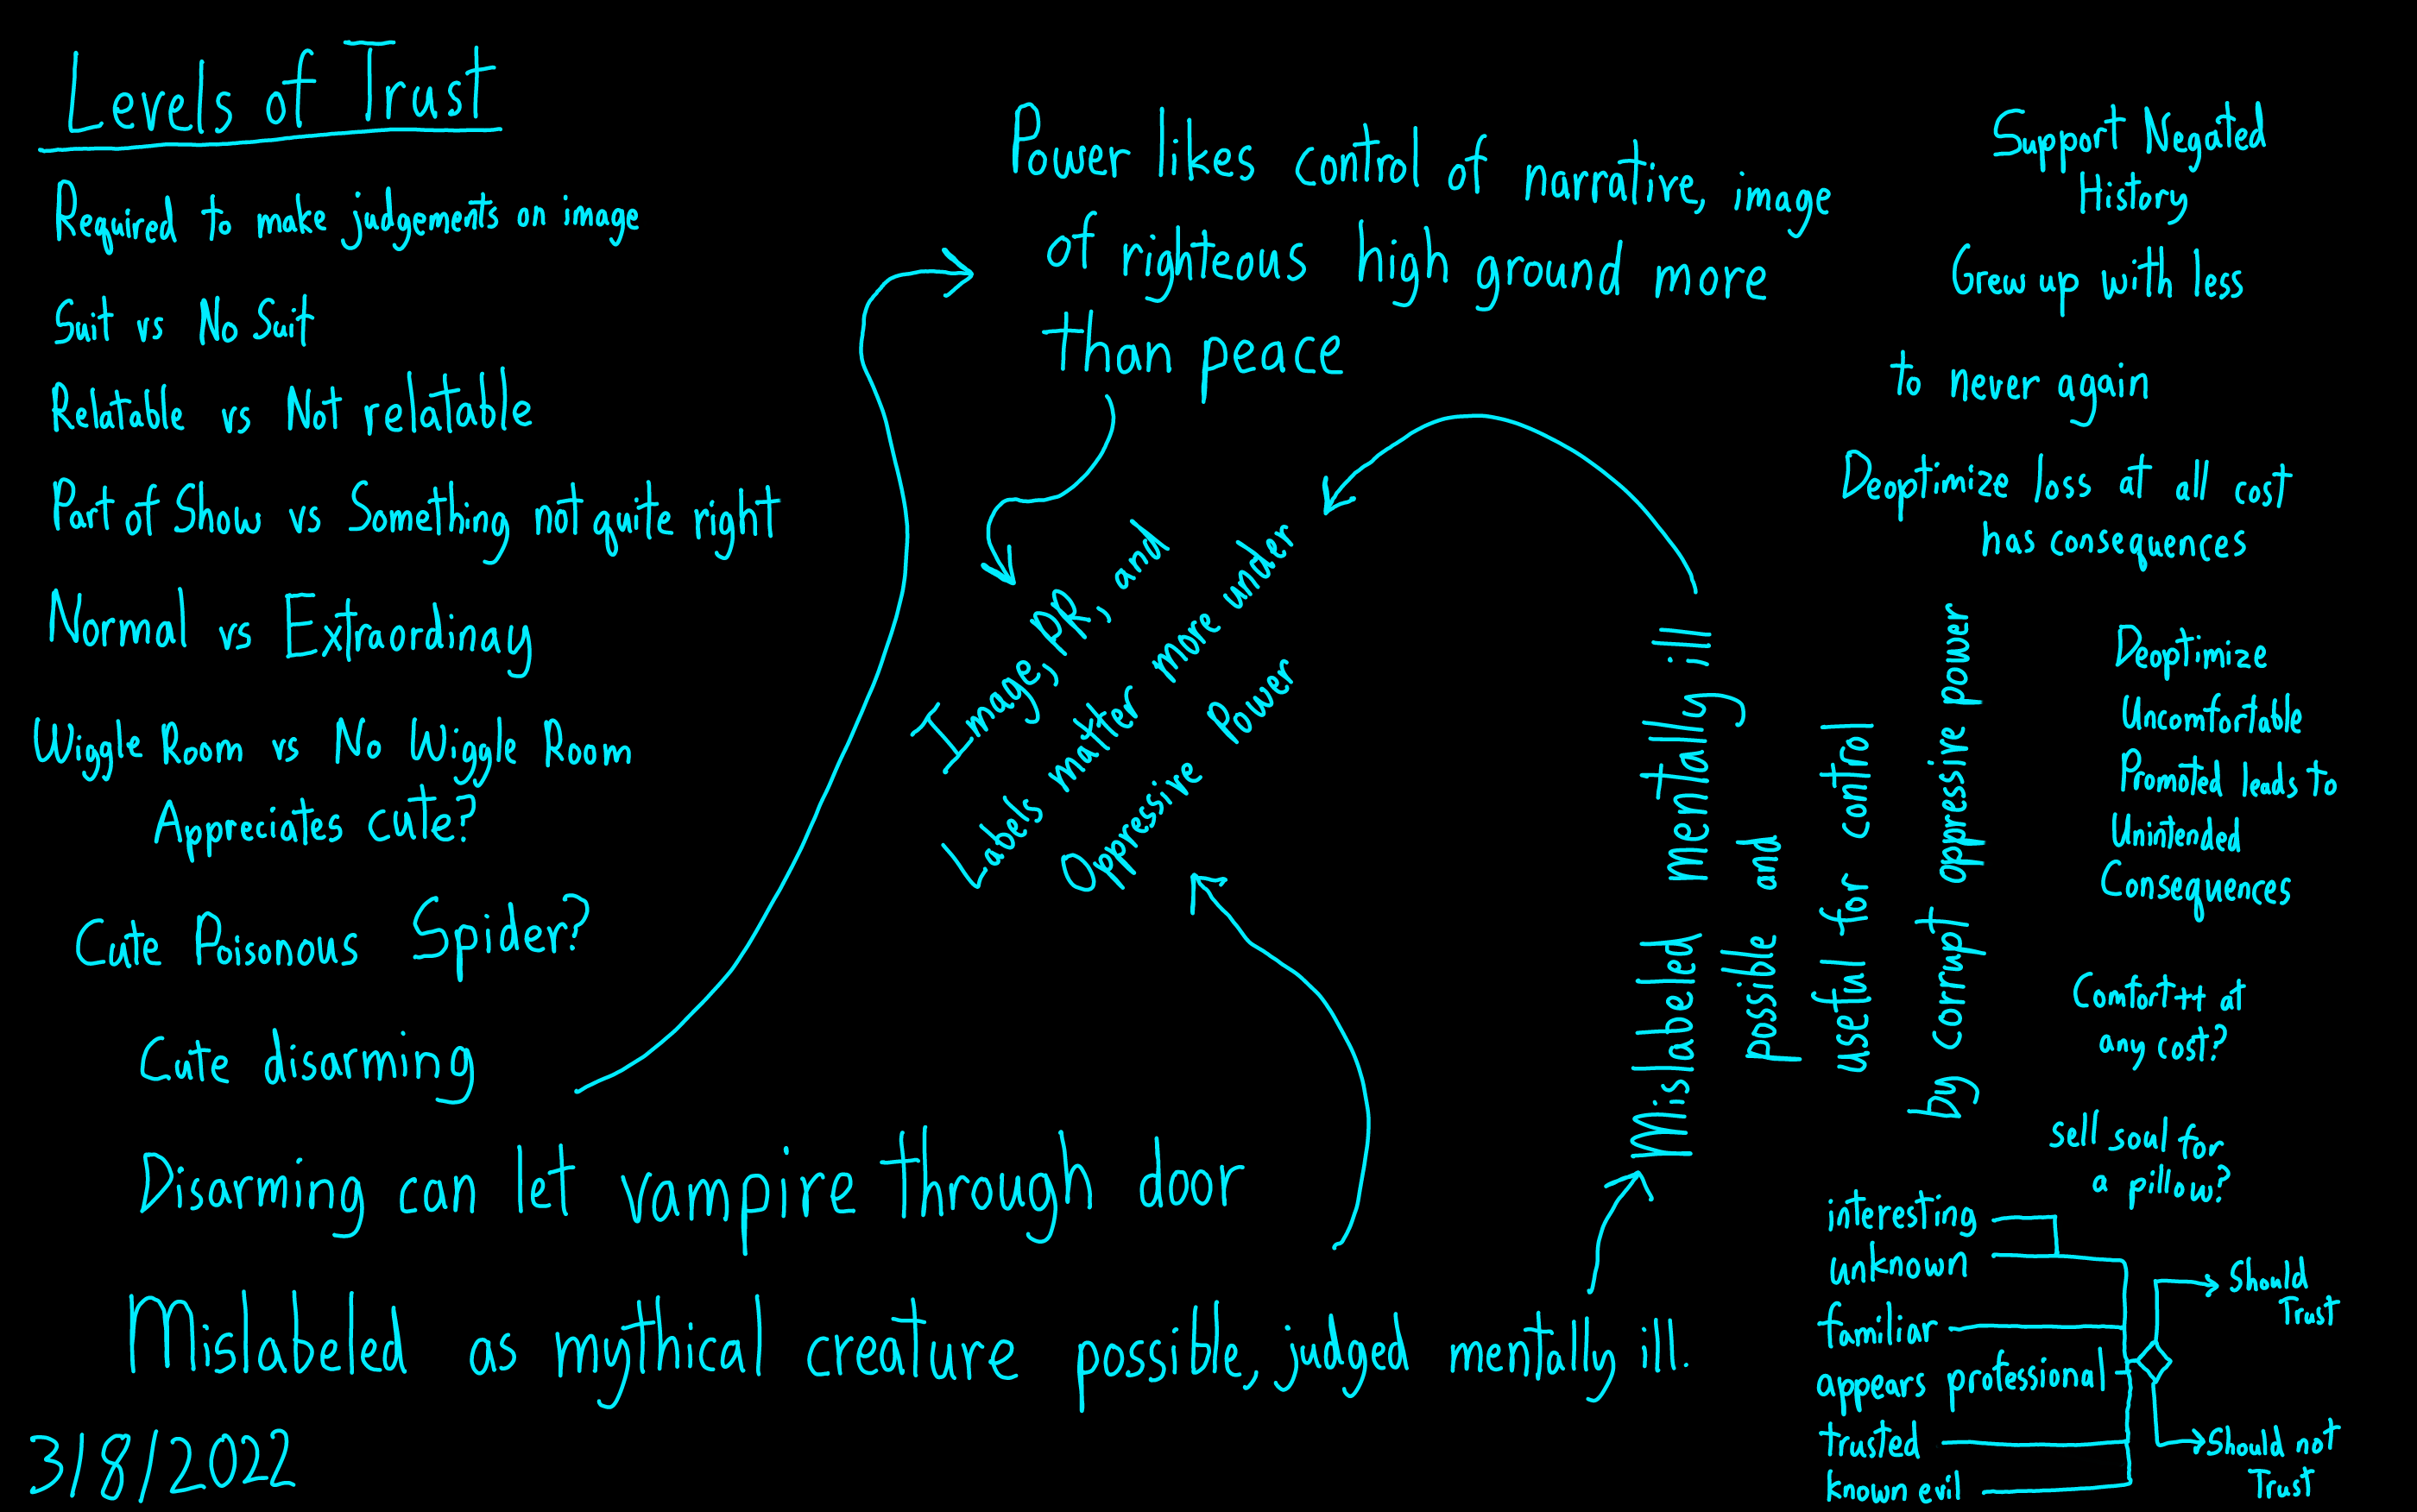 Levels of Trust
Required to make judgements on image
Suit vs No Suit
Relatable vs Not relatable
Part of Show vs Something not quite right
Normal vs Extraordinay
Wiggle Room vs No Wiggle Room
Appreciates cute?
Cute Poisonous Spider?
Cute disarming
Disarming can let vampire through door
Mislabeled as mythical creature possible, judged mentally ill.
3/8/2022
Power likes control of narrative, image
of righteous high ground more
than peace
Image, PR, and
Labels matter more under
Oppressive Power
Mislabeled mentally ill
possible and
useful for control
by corrupt oppressive power
Support Negated
History
Grew up with less
to never again
Deoptimize loss at all cost
has consequences
Deoptimize
Uncomfortable
Promoted leads to
Unintended
Consequences
Comfort++ at
any cost?
sell soul for
a pillow?
interesting
unknown
familiar
appears professional
trusted
known evil
Should
Trust
Should not
Trust